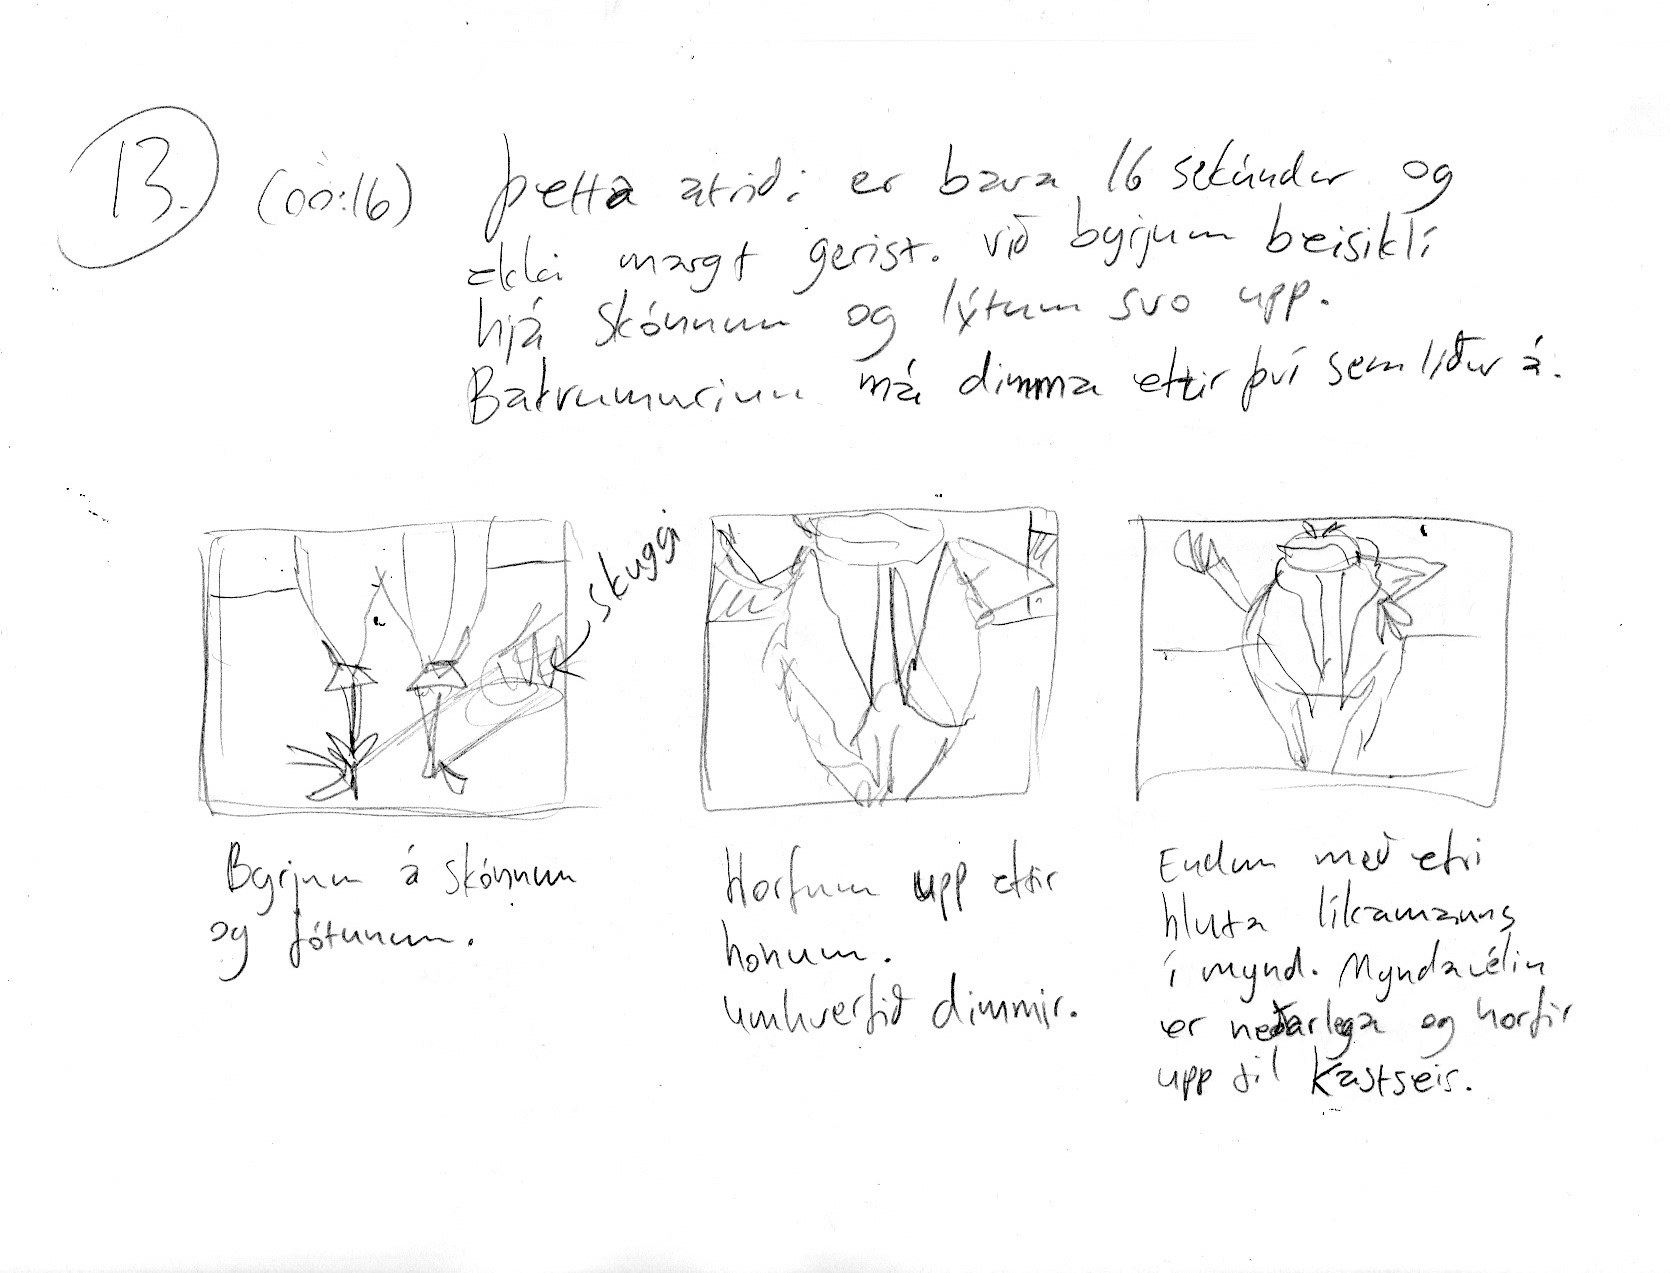 13. (00:16) Þetta atriði er bara 16 sekúndur og
ekki margt gerist. við byrjum beisiklí
hjá skónnum og lýtum svo upp.
Bakrunnurinn má dimma eftir því sem líður á.
skuggi
Byrjum á skónnum
og fótunum.
Horfum upp eftir
honum.
umhverfið dimmir.
Endum með efri
hluta líkamanns
í mynd. Myndavélin
er neðarlega og horfir
upp til Kastseis.